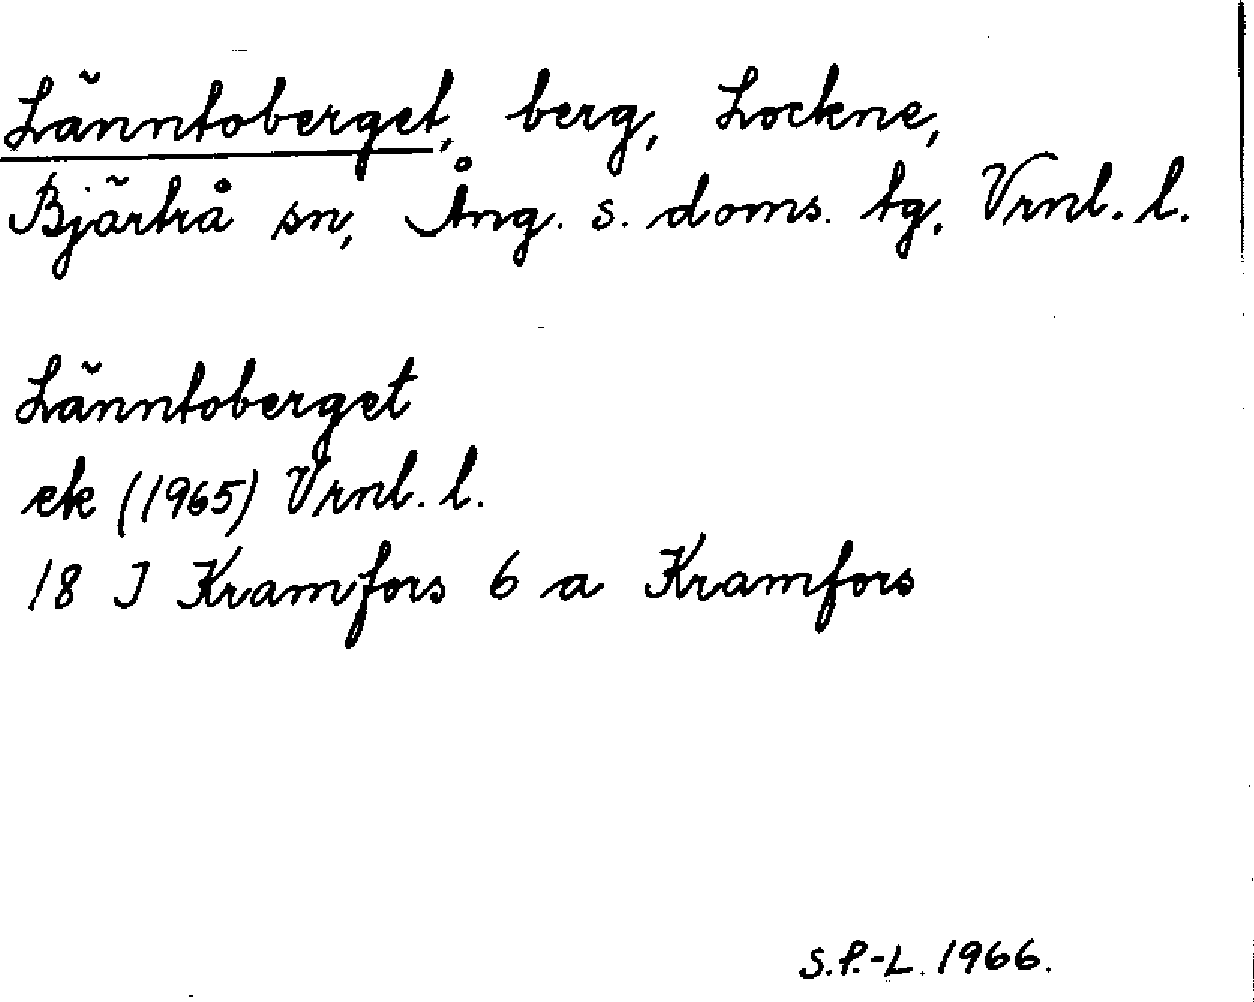 Länntoberget, berg, Lockne,
Bjärtrå sn, Ång. s. doms. tg. Vrnl. l.
Länntoberget
ek (1965) Vrnl. l.
18 J Kramfors 6 a Kramfors
S.P.-L. 1966.